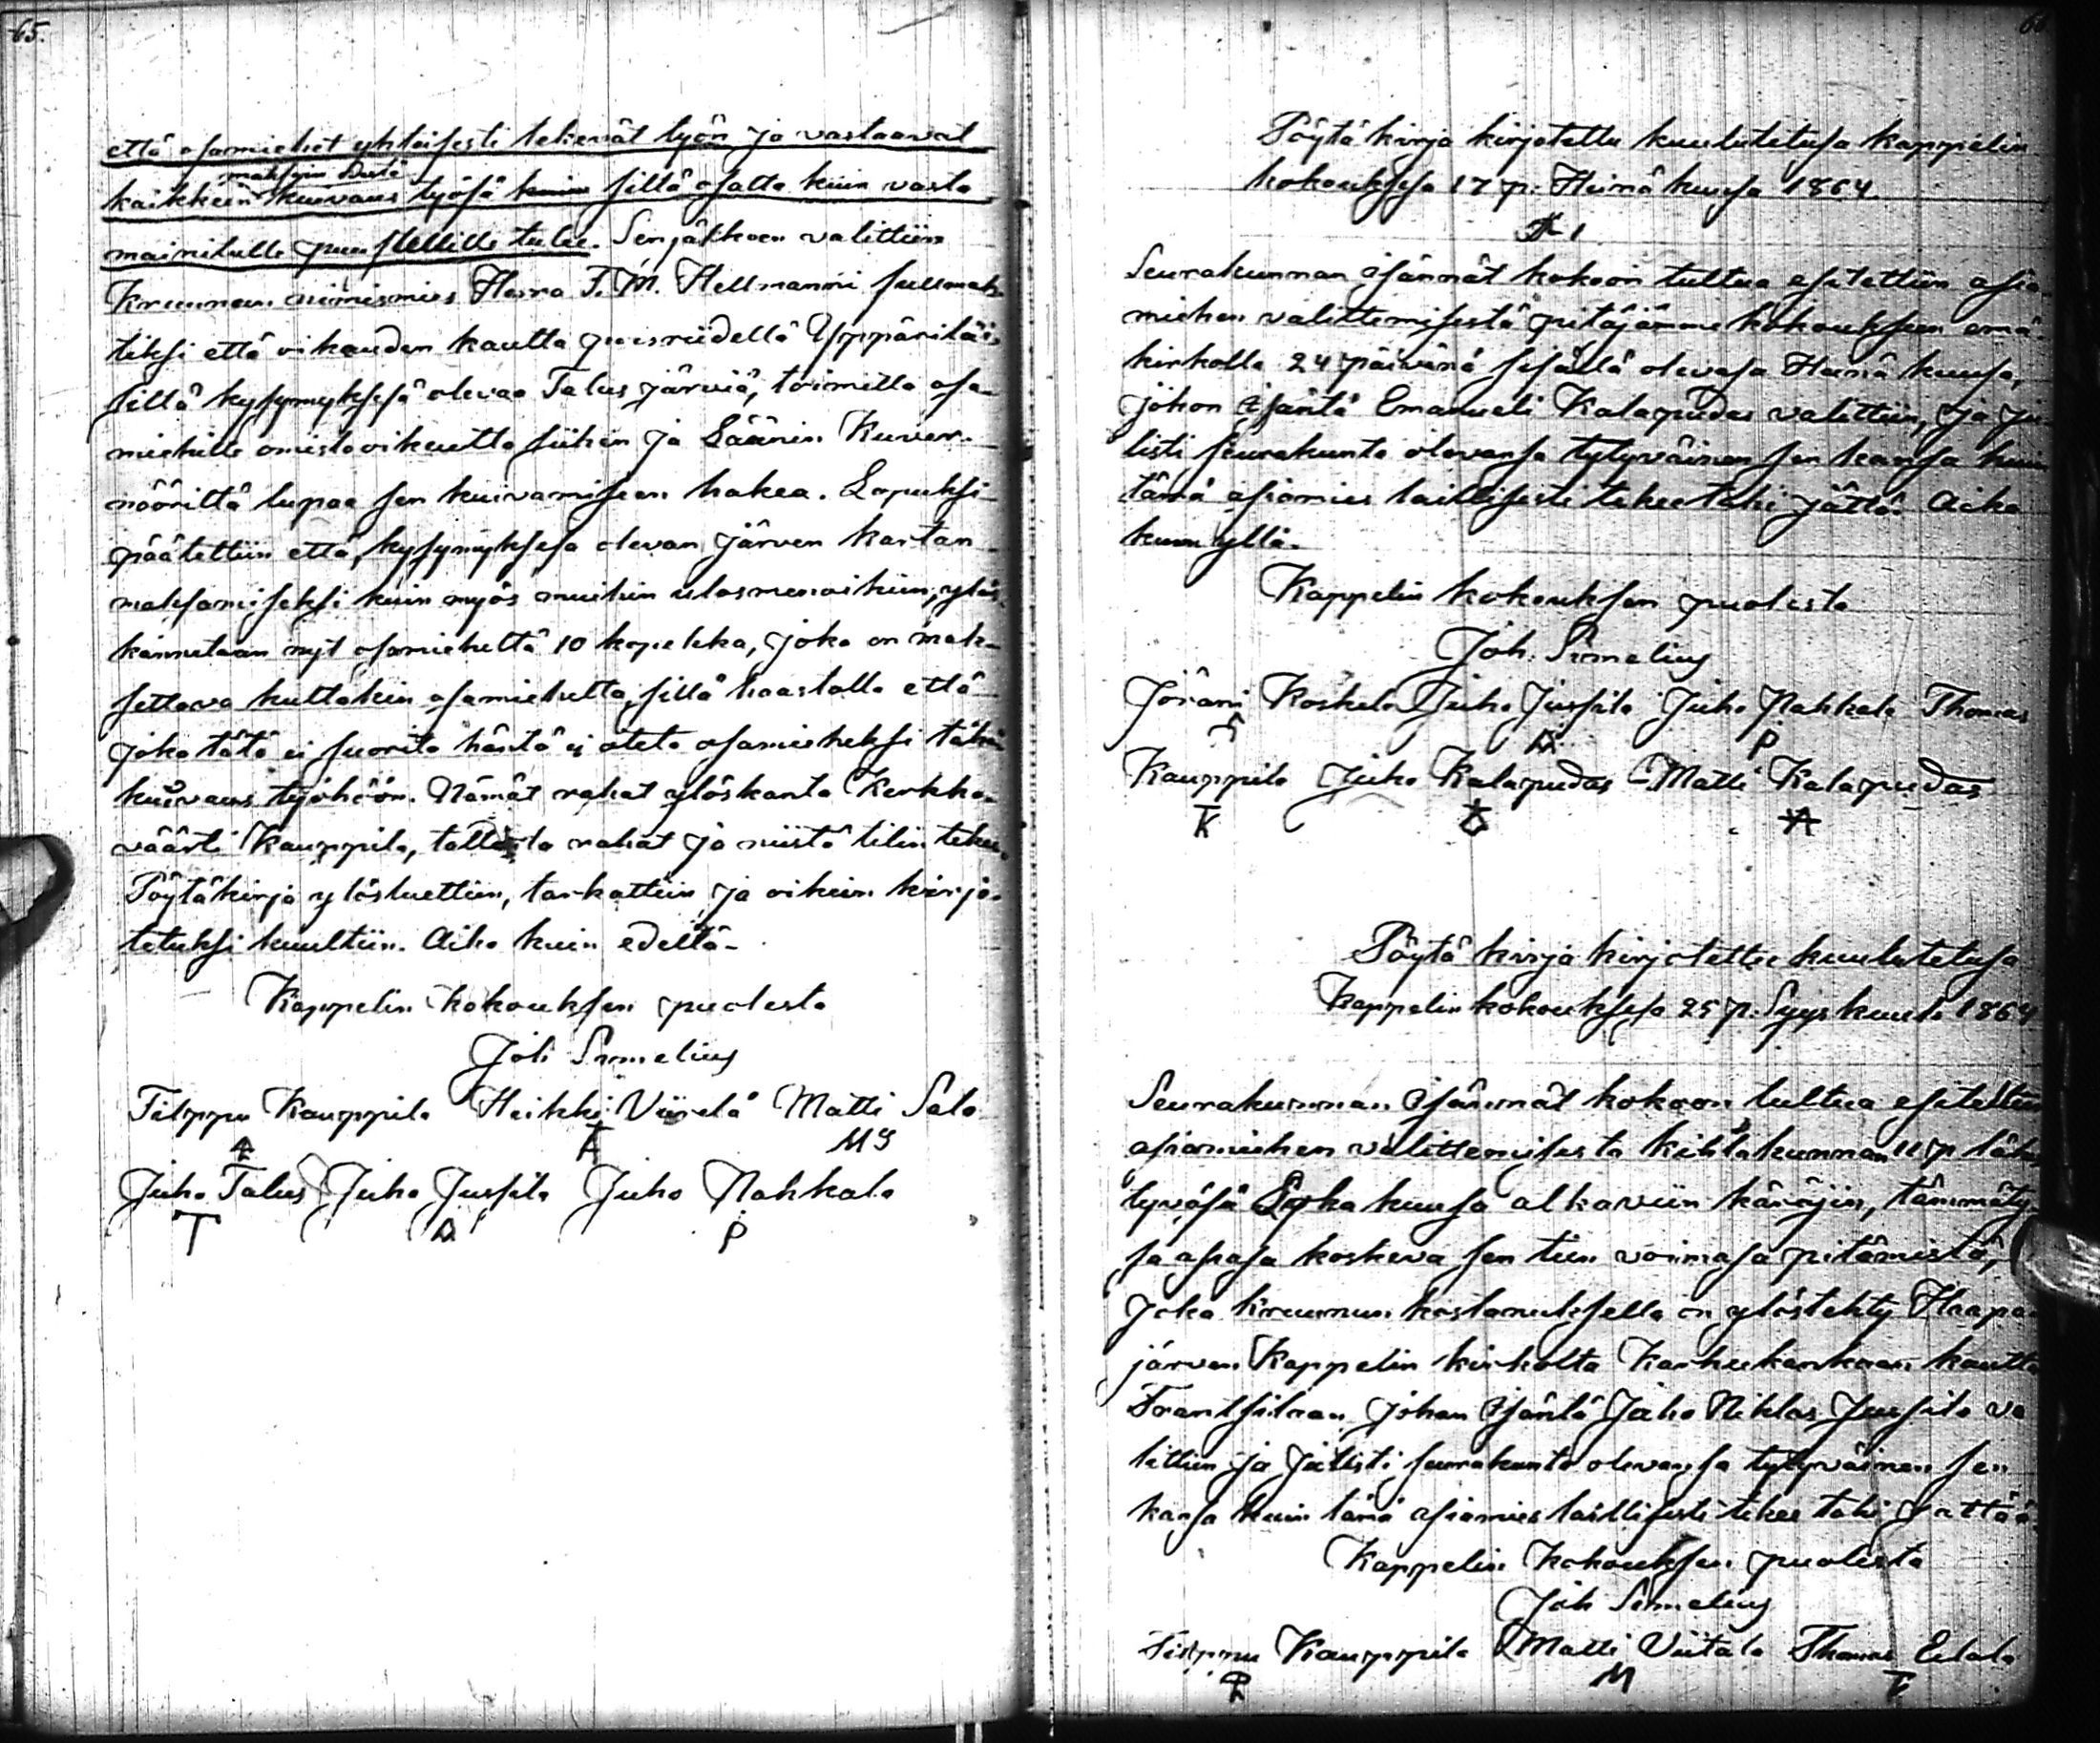 65.
että osamiehet yhtäisesti tekevät työn ja vastaavat
maksun
kaikkiin kuivaus työsä kuin sillä osalla kuin vasta
mainitulle puustellille tulee. Senjälkeen valittiin
Kruunun nimismies Herra F. M. Hellmanni fullmak-
tiksi että oikeuden kautta puisriidellä Yppäriläi-
sillä kysymyksesä olevaa Talus järviä, toimitta osa-
miehille omistooikeutta siihen ja Läänin Kuver-
nööriltä lupaa sen kuivamiseen hakea. Lopuksi
päätettiin että, kysymyksesä olevan järven kartan
maksamiseksi kuin myös muihin ulosmenoihin, ylös
kannetaan nyt osamieheltä 10 kopekka, joka on mak-
settava kultakin osamieheltä, sillä haastolla että
joka tätä ei suorita häntä ei oteta osamieheksi tähän
kuivaus työhöön. Nämät rahat ylöskanta Kirkko-
väärti Kauppila, tallita rahat ja niistä tilin tekee.
Pöytäkirja ylösluettiin, tarkattiin ja oikein kirjo-
tetuksi kuultiin. Aika kuin edellä-
Kappelin kokouksen puolesta
Joh Snmelius
Filppu Kauppila Heikki Viirelä Matti Salo
MS
Juho Talus Juho Jussila Juho Nahkala
T A P
66
Pöytä kirja kirjotettu kuulutetusa Kappelin
kokouksesa 17 p. Heinä kuusa 1864.
§ 1
Seurakunnan isännät kokoon tultua esitettiin asia-
miehen valittemisestä pitäjänne kokoukseen emä-
kirkolla 24 päivänä sisällä olevasa Heinä kuusa,
johon isäntä Emanueli Kalapudas valittiin, ja ju-
listi seurakunta olevansa tytyväinen sen kansa kuin
tämä asiamies laillisesti tekee tahi jättää. Aika
kuin yllä.
Kappelin kokouksen puolesta
Joh. Snmelius
Jörani Koskela Juho Jussila Juho Nahkala Thomas
A P
Kauppila Juho Kalapudas Matti Kalapudas
K
Pöytä kirja kirjotettu kuulutetusa
Kappelin kokouksesa 25 p. Syys kuusa 1864
Seurakunnan isännät kokoon tultua esitettiin
asiamiehen valittemisesta kihlakunnan 11 p lähes
tyväsä Loka kuusa alkaviin käräjiin, tämmäty-
sä asiasa koskeva sen tien voimasa pitämistä,
joka kruunun kostanuksella on ylöstehty Haapa-
järven Kappelin kirkolta Karhukankaan kautta
Frantsilaan johon isäntä Juho Niklas Jussila va
littiin ja julisti seurakunta olevansa tytyväinen sen
kansa kuin tämä asiamies laillisesti tekee tahi jättää.
Kappelin Kokouksen puolesta
Joh Snmelius
Filppu Kauppila Matti Viitala Thomas Eilola
M T